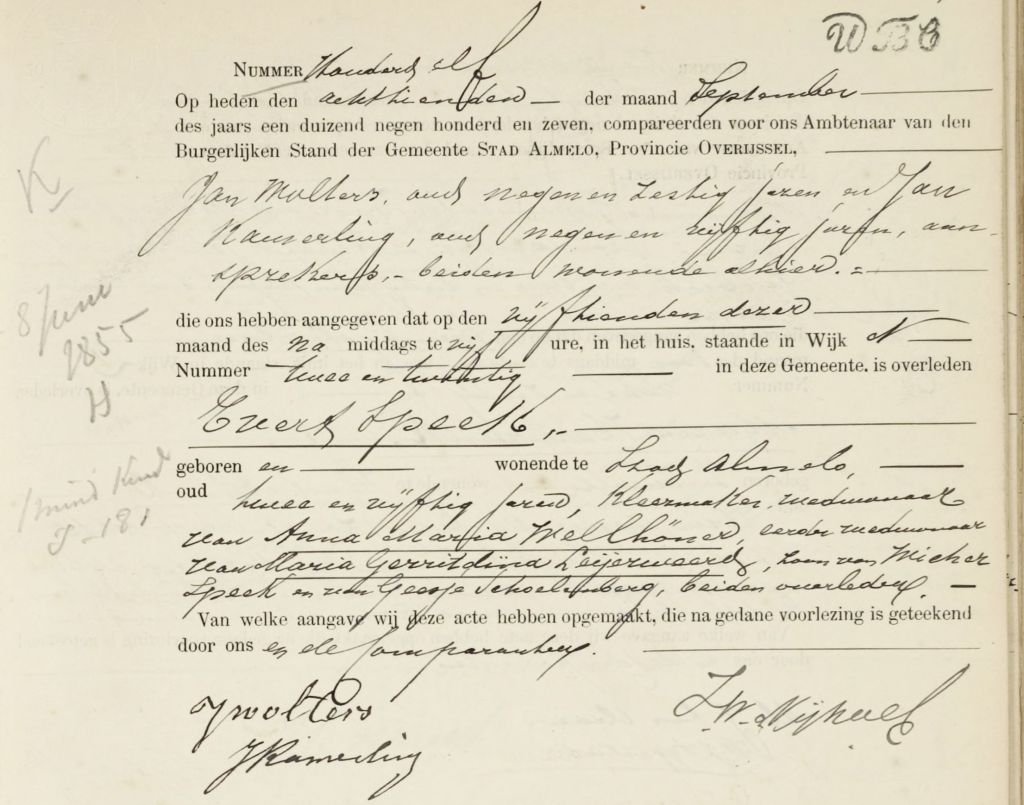 NUMMER Honderd elf
Op heden den achttienden der maand September
des jaars een duizend negen honderd en zeven, compareerden voor ons Ambtenaar van den
Burgerlijken Stand der Gemeente STAD ALMELO, Provincie OVERIJSSEL,
Jan Wolters, oud negen en zestig jaren en Jan
Kamerling, oud negen en vijftig jaren, aan-
sprekers, beiden wonende alhier.
die ons hebben aangegeven dat op den vijftienden dezer
maand des na middags te vijf ure, in het huis, staande in Wijk N
Nummer twee en twintig in deze Gemeente, is overleden
Evert Speek,
geboren en wonende te Stad Almelo,
oud twee en vijftig jaren, Kleermaker, weduwnaar
van Anna Maria Wellhöner, eerder weduwnaar
van Maria Gerritdina Leijerweerd, zoon van Wicher
Speek en van Geesje Schoelenberg, beiden overleden.
Van welke aangave wij deze acte hebben opgemaakt, die na gedane voorlezing is geteekend
door ons en de Comparanten.
JWolters
JKamerling
K
8 Juni
1855